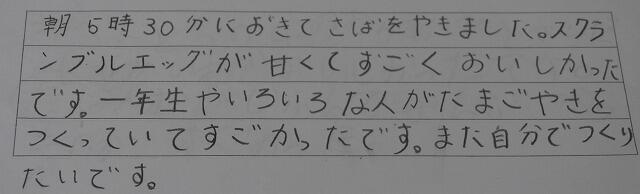 朝6時30分におきてさばをやきました。スクラ
ンブルエッグが甘くてすごくおいしかった
です。一年生やいろいろな人がたまごやきを
つくっていてすごかったです。また自分でつくり
たいです。